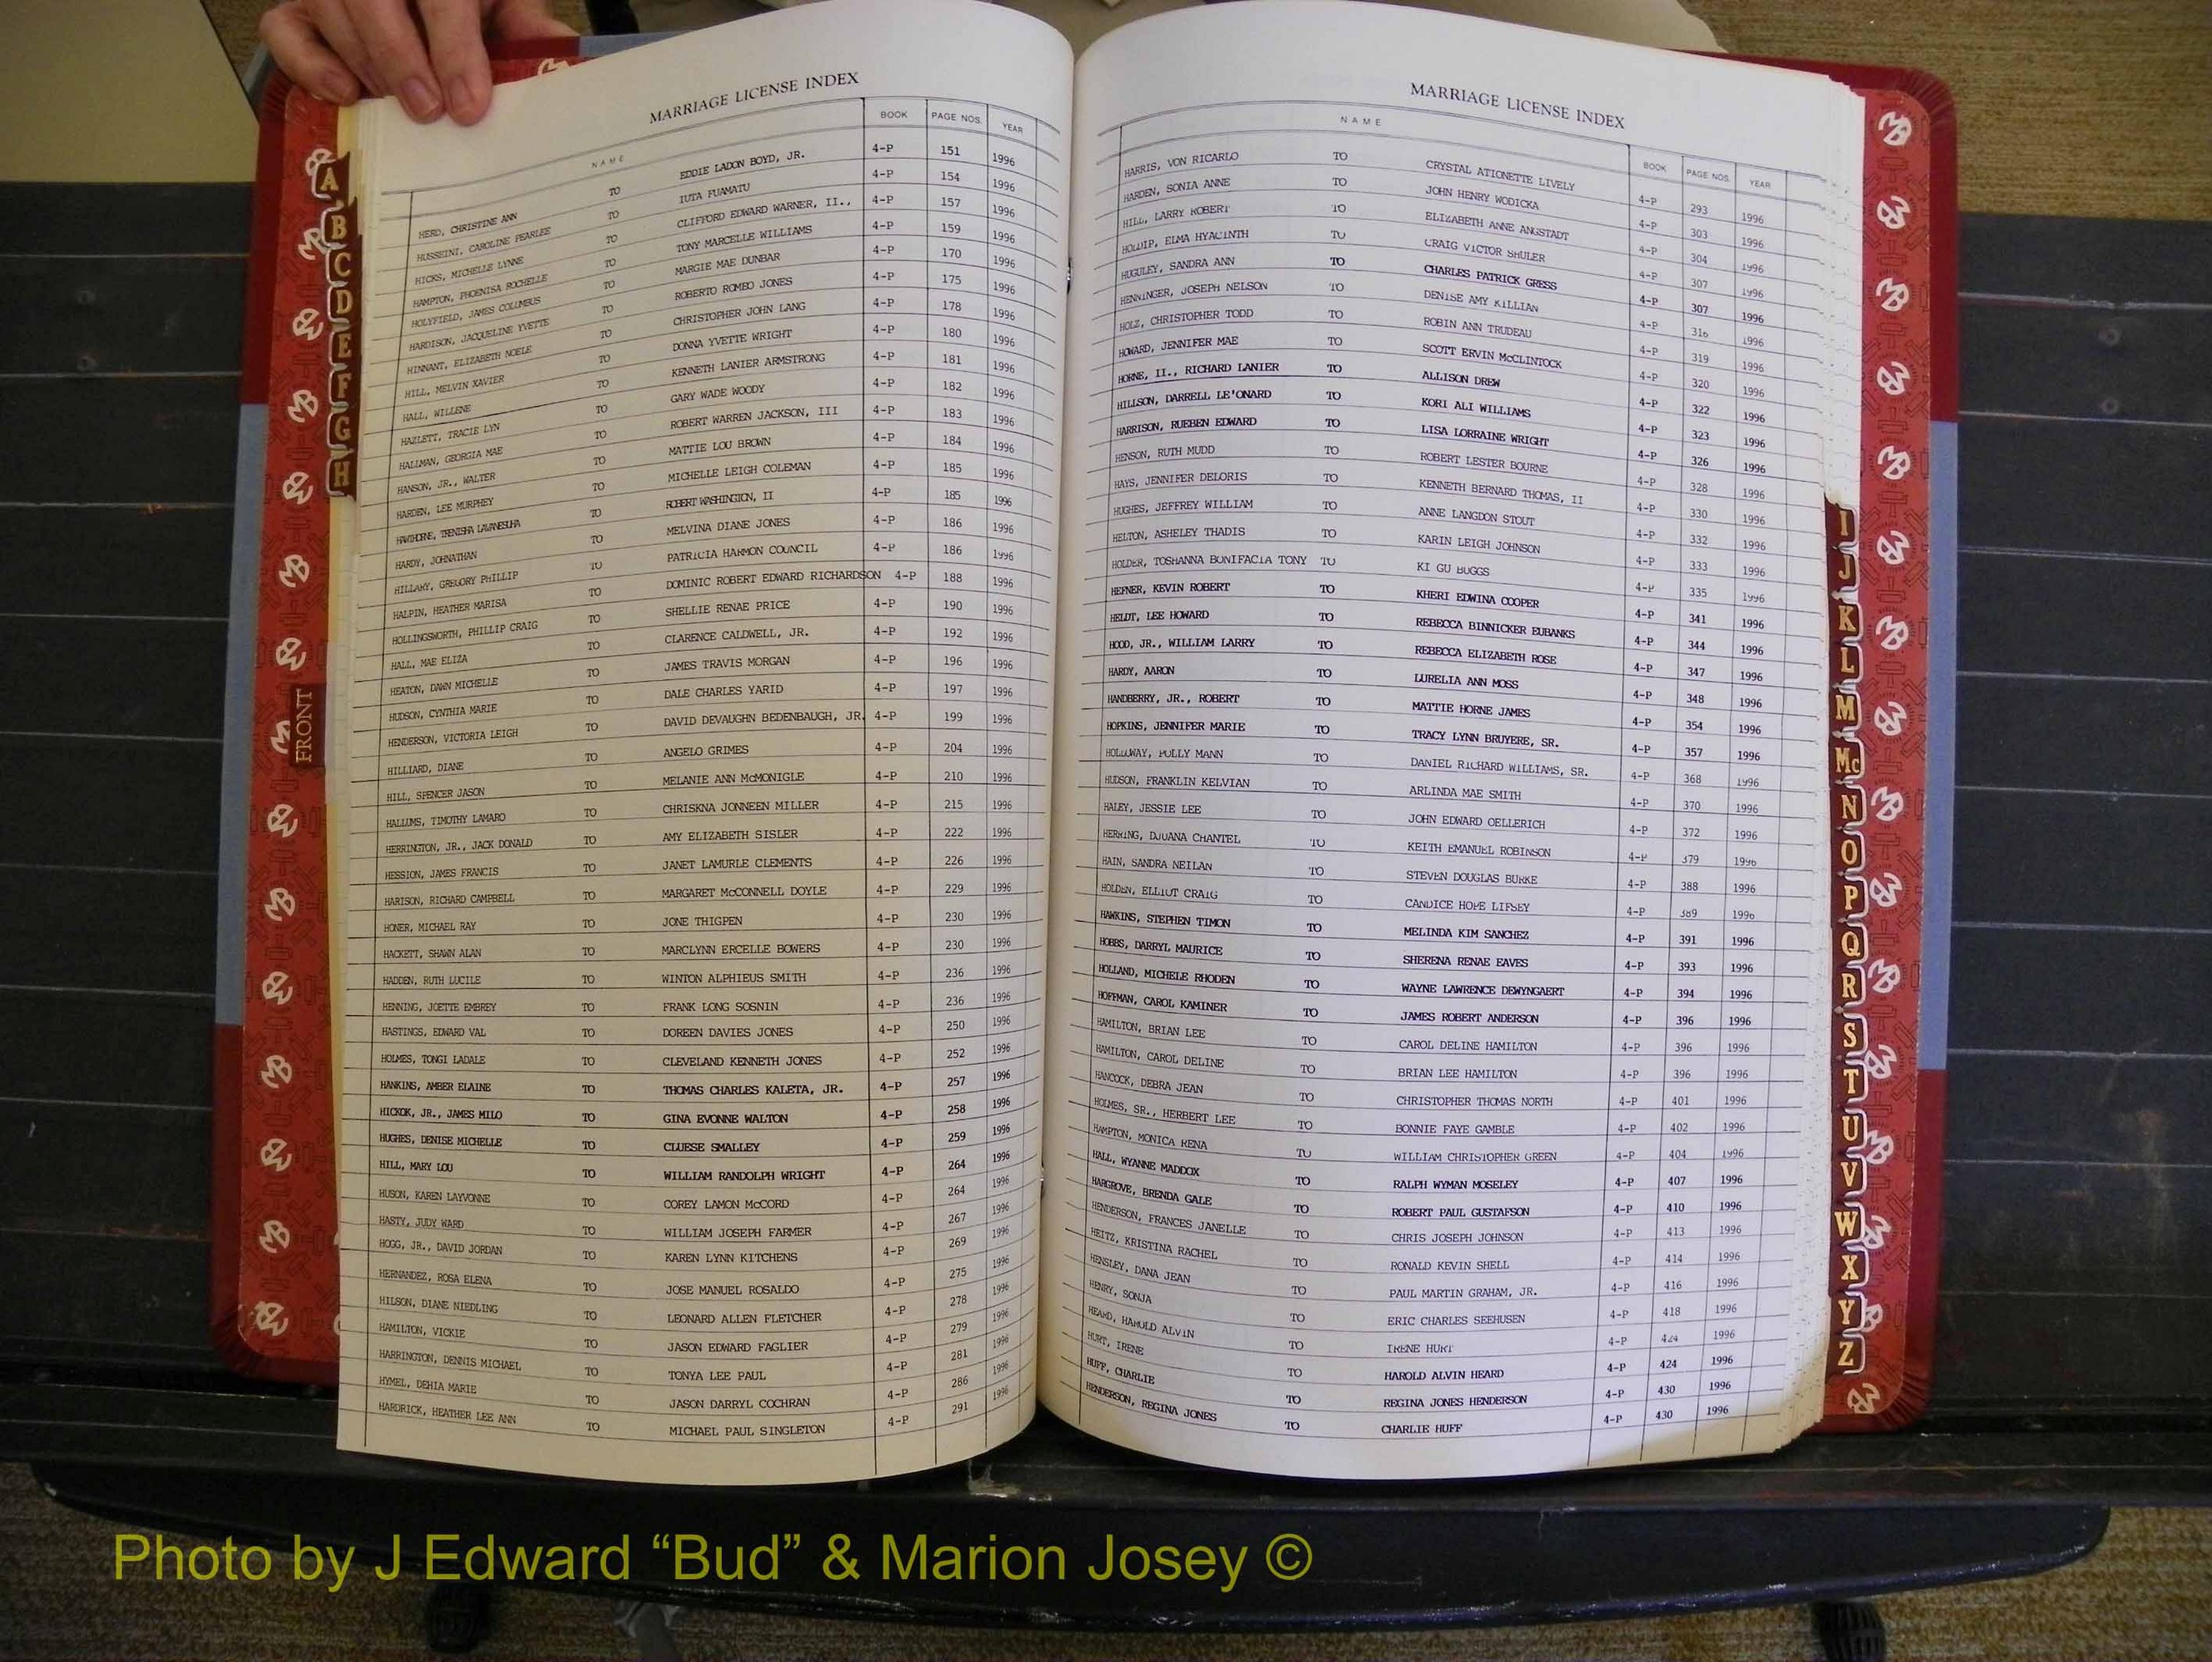 MARRIAGE LICENSE INDEX
NAME BOOK PAGE NOS. YEAR
HERD, CHRISTINE ANN TO EDDIE LADON BOYD, JR. 4-P 151 1996
HUSSEINI, CAROLINE PEARLEE TO IUTA FUAMATU 4-P 154 1996
HICKS, MICHELLE LYNNE TO CLIFFORD EDWARD WARNER, II., 4-P 157 1996
HAMPTON, PHOENISA ROCHELLE TO TONY MARCELLE WILLIAMS 4-P 159 1996
HOLYFIELD, JAMES COLUMBUS TO MARGIE MAE DUNBAR 4-P 170 1996
HARDISON, JACQUELINE YVETTE TO ROBERTO ROMEO JONES 4-P 175 1996
HINNANT, ELIZABETH NOELE TO CHRISTOPHER JOHN LANG 4-P 178 1996
HILL, MELVIN XAVIER TO DONNA YVETTE WRIGHT 4-P 180 1996
HALL, WILLENE TO KENNETH LANIER ARMSTRONG 4-P 181 1996
HAZLETT, TRACIE LYN TO GARY WADE WOODY 4-P 182 1996
HALLMAN, GEORGIA MAE TO ROBERT WARREN JACKSON, III 4-P 183 1996
HANSON, JR., WALTER TO MATTIE LOU BROWN 4-P 184 1996
HARDEN, LEE MURPHEY TO MICHELLE LEIGH COLEMAN 4-P 185 1996
HAWTHORNE, TRENISHA LAWANESUHA TO ROBERT WASHINGTON, II 4-P 185 1996
HARDY, JOHNATHAN TO MELVINA DIANE JONES 4-P 186 1996
HILLARY, GREGORY PHILLIP TO PATRICIA HARMON COUNCIL 4-P 186 1996
HALPIN, HEATHER MARISA TO DOMINIC ROBERT EDWARD RICHARDSON 4-P 188 1996
HOLLINGSWORTH, PHILLIP CRAIG TO SHELLIE RENAE PRICE 4-P 190 1996
HALL, MAE ELIZA TO CLARENCE CALDWELL, JR. 4-P 192 1996
HEATON, DAWN MICHELLE TO JAMES TRAVIS MORGAN 4-P 196 1996
HUDSON, CYNTHIA MARIE TO DALE CHARLES YARID 4-P 197 1996
HENDERSON, VICTORIA LEIGH TO DAVID DEVAUGHN BEDENBAUGH, JR. 4-P 199 1996
HILLIARD, DIANE TO ANGELO GRIMES 4-P 204 1996
HILL, SPENCER JASON TO MELANIE ANN McMONIGLE 4-P 210 1996
HALLUMS, TIMOTHY LAMARO TO CHRISKNA JONNEEN MILLER 4-P 215 1996
HERRINGTON, JR., JACK DONALD TO AMY ELIZABETH SISLER 4-P 222 1996
HESSION, JAMES FRANCIS TO JANET LAMURLE CLEMENTS 4-P 226 1996
HARISON, RICHARD CAMPBELL TO MARGARET McCONNELL DOYLE 4-P 229 1996
HONER, MICHAEL RAY TO JONE THIGPEN 4-P 230 1996
HACKETT, SHAWN ALAN TO MARCLYNN ERCELLE BOWERS 4-P 230 1996
HADDEN, RUTH LUCILE TO WINTON ALPHIEUS SMITH 4-P 236 1996
HENNING, JOETTE EMBREY TO FRANK LONG SOSNIN 4-P 236 1996
HASTINGS, EDWARD VAL TO DOREEN DAVIES JONES 4-P 250 1996
HOLMES, TONGI LADALE TO CLEVELAND KENNETH JONES 4-P 252 1996
HANKINS, AMBER ELAINE TO THOMAS CHARLES KALETA, JR. 4-P 257 1996
HICKOK, JR., JAMES MILO TO GINA EVONNE WALTON 4-P 258 1996
HUGHES, DENISE MICHELLE TO CLUESE SMALLEY 4-P 259 1996
HILL, MARY LOU TO WILLIAM RANDOLPH WRIGHT 4-P 264 1996
HUSON, KAREN LAYVONNE TO COREY LAMON McCORD 4-P 264 1996
HASTY, JUDY WARD TO WILLIAM JOSEPH FARMER 4-P 267 1996
HOGG, JR., DAVID JORDAN TO KAREN LYNN KITCHENS 4-P 269 1996
HERNANDEZ, ROSA ELENA TO JOSE MANUEL ROSALDO 4-P 275 1996
HILSON, DIANE NIEDLING TO LEONARD ALLEN FLETCHER 4-P 278 1996
HAMILTON, VICKIE TO JASON EDWARD FAGLIER 4-P 279 1996
HARRINGTON, DENNIS MICHAEL TO TONYA LEE PAUL 4-P 281 1996
HYMEL, DEHIA MARIE TO JASON DARRYL COCHRAN 4-P 286 1996
HARDRICK, HEATHER LEE ANN TO MICHAEL PAUL SINGLETON 4-P 291 1996
MARRIAGE LICENSE INDEX
NAME BOOK PAGE NOS. YEAR
HARRIS, VON RICARLO TO CRYSTAL ATIONETTE LIVELY 4-P 293 1996
HARDEN, SONIA ANNE TO JOHN HENRY WODICKA 4-P 303 1996
HILL, LARRY ROBERT TO ELIZABETH ANNE ANGSTADT 4-P 304 1996
HOLDIP, ELMA HYACINTH TO CRAIG VICTOR SHULER 4-P 307 1996
HUGULEY, SANDRA ANN TO CHARLES PATRICK GRESS 4-P 307 1996
HENNINGER, JOSEPH NELSON TO DENISE AMY KILLIAN 4-P 316 1996
HOLZ, CHRISTOPHER TODD TO ROBIN ANN TRUDEAU 4-P 319 1996
HOWARD, JENNIFER MAE TO SCOTT ERVIN McCLINTOCK 4-P 320 1996
HORNE, II., RICHARD LANIER TO ALLISON DREW 4-P 322 1996
HILLSON, DARRELL LE'ONARD TO KORI ALI WILLIAMS 4-P 323 1996
HARRISON, RUEBEN EDWARD TO LISA LORRAINE WRIGHT 4-P 326 1996
HENSON, RUTH MUDD TO ROBERT LESTER BOURNE 4-P 328 1996
HAYS, JENNIFER DELORIS TO KENNETH BERNARD THOMAS, II 4-P 330 1996
HUGHES, JEFFREY WILLIAM TO ANNE LANGDON STOUT 4-P 332 1996
HELTON, ASHELEY THADIS TO KARIN LEIGH JOHNSON 4-P 333 1996
HOLDER, TOSHANNA BONIFACIA TONY TO KI GU BUGGS 4-P 335 1996
HEFNER, KEVIN ROBERT TO KHERI EDWINA COOPER 4-P 341 1996
HELDT, LEE HOWARD TO REBECCA BINNICKER EUBANKS 4-P 344 1996
HOOD, JR., WILLIAM LARRY TO REBECCA ELIZABETH ROSE 4-P 347 1996
HARDY, AARON TO LURELIA ANN MOSS 4-P 348 1996
HANDBERRY, JR., ROBERT TO MATTIE HORNE JAMES 4-P 354 1996
HOPKINS, JENNIFER MARIE TO TRACY LYNN BRUYERE, SR. 4-P 357 1996
HOLLOWAY, POLLY MANN TO DANIEL RICHARD WILLIAMS, SR. 4-P 368 1996
HUDSON, FRANKLIN KELVIAN TO ARLINDA MAE SMITH 4-P 370 1996
HALEY, JESSIE LEE TO JOHN EDWARD OELLERICH 4-P 372 1996
HERRING, DJUANA CHANTEL TO KEITH EMANUEL ROBINSON 4-P 379 1996
HAIN, SANDRA NEILAN TO STEVEN DOUGLAS BURKE 4-P 388 1996
HOLDEN, ELLIOT CRAIG TO CANDICE HOPE LIFSEY 4-P 389 1996
HAWKINS, STEPHEN TIMON TO MELINDA KIM SANCHEZ 4-P 391 1996
HOBBS, DARRYL MAURICE TO SHERENA RENAE EAVES 4-P 393 1996
HOLLAND, MICHELE RHODEN TO WAYNE LAWRENCE DEWYNGAERT 4-P 394 1996
HOFFMAN, CAROL KAMINER TO JAMES ROBERT ANDERSON 4-P 396 1996
HAMILTON, BRIAN LEE TO CAROL DELINE HAMILTON 4-P 396 1996
HAMILTON, CAROL DELINE TO BRIAN LEE HAMILTON 4-P 396 1996
HANCOCK, DEBRA JEAN TO CHRISTOPHER THOMAS NORTH 4-P 401 1996
HOLMES, SR., HERBERT LEE TO BONNIE FAYE GAMBLE 4-P 402 1996
HAMPTON, MONICA RENA TO WILLIAM CHRISTOPHER GREEN 4-P 404 1996
HALL, WYANNE MADDOX TO RALPH WYMAN MOSELEY 4-P 407 1996
HARGROVE, BRENDA GALE TO ROBERT PAUL GUSTAFSON 4-P 410 1996
HENDERSON, FRANCES JANELLE TO CHRIS JOSEPH JOHNSON 4-P 413 1996
HEITZ, KRISTINA RACHEL TO RONALD KEVIN SHELL 4-P 414 1996
HENSLEY, DANA JEAN TO PAUL MARTIN GRAHAM, JR. 4-P 416 1996
HENRY, SONJA TO ERIC CHARLES SEEHUSEN 4-P 418 1996
HEARD, HAROLD ALVIN TO IRENE HURT 4-P 424 1996
HURT, IRENE TO HAROLD ALVIN HEARD 4-P 424 1996
HUFF, CHARLIE TO REGINA JONES HENDERSON 4-P 430 1996
HENDERSON, REGINA JONES TO CHARLIE HUFF 4-P 430 1996
A
B
C
D
E
F
G
H
FRONT
I
J
K
L
M
Mc
N
O
P
Q
R
S
T
U
V
W
X
Y
Z
Photo by J Edward “Bud” & Marion Josey ©